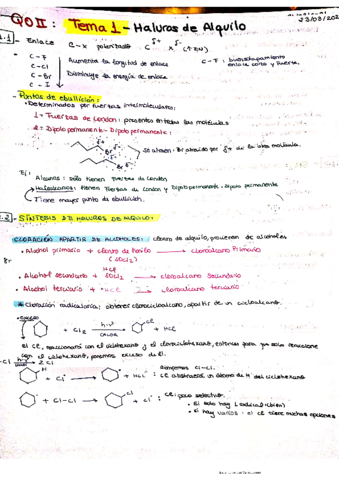 QOII: Tema 1 - Haluros de Alquilo
23/03/202
1.1 - Enlace
C-X polarizado C δ+ X δ- (↑EN)
C-F
C-Cl
C-Br
C-I
Aumenta la longitud de enlace
Disminuye la energía de enlace
C-F: enlace corto y fuerte.
- Puntos de ebullición:
• Determinados por fuerzas intermoleculares:
1 = Fuerzas de London: presentes en todas las moléculas
2 = Dipolo permanente - Dipolo permanente:
Br
Se atraen. Br atraído por δ+ de la otra molécula.
Ej:
Alcanos: solo tienen Fuerzas de London
Haloalcanos: tienen Fuerzas de London y Dipolo permanente - Dipolo permanente
Tiene mayor punto de ebullición.
1.2 - SÍNTESIS DE HALUROS DE ALQUILO:
CLORACIÓN A PARTIR DE ALCOHOLES: cloruro de alquilo, provienen de alcoholes
• Alcohol primario + cloruro de tionilo (SOCl2) → Cloroalcano Primario
Br
• Alcohol secundario + HCl SOCl2 → cloroalcano secundario
• Alcohol terciario + HCl → cloroalcano terciario
* Cloración radicalaria: obtener clorocicloalcano, a partir de un cicloalcano.
EXCESO
+ Cl2 h·ν CALOR Cl + HCl
El Cl2 reaccionará con el ciclohexano y el clorociclohexano, entonces para que solo reaccione
con el ciclohexano, ponemos exceso de él.
-Cl h·ν 2 Cl·
Rompemos Cl-Cl.
H + Cl· → + HCl
: Cl abstraerá un átomo de H del ciclohexano
+ Cl-Cl → Cl + Cl·
: Cl poco selectivo.
• Si solo hay 1 radical (bien)
• Si hay varios → el Cl tiene muchas opciones